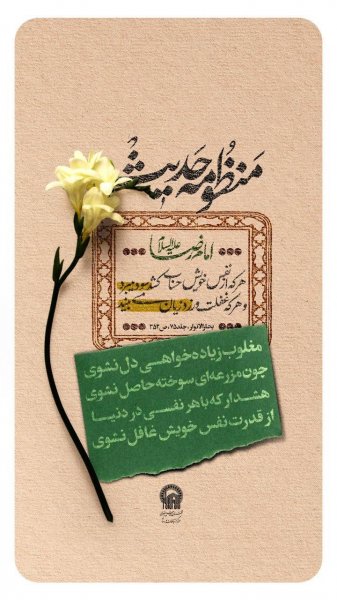 منظومه حدیث
امام رضا علیه‌السلام
هر که از نفس خویش حساب کشد سود میبرد
و هر که غفلت ورزد زیان می‌بیند
بحارالانوار، جلد۷۵، ص۳۵۲
مغلوب زیاده‌خواهی دل نشوی
چون مزرعه‌ای سوخته حاصل نشوی
هشدار که با هر نفسی در دنیا
از قدرت نفس خویش غافل نشوی